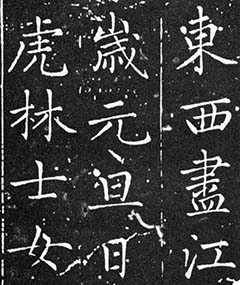 東西盡江
歲元旦日
虎林士女